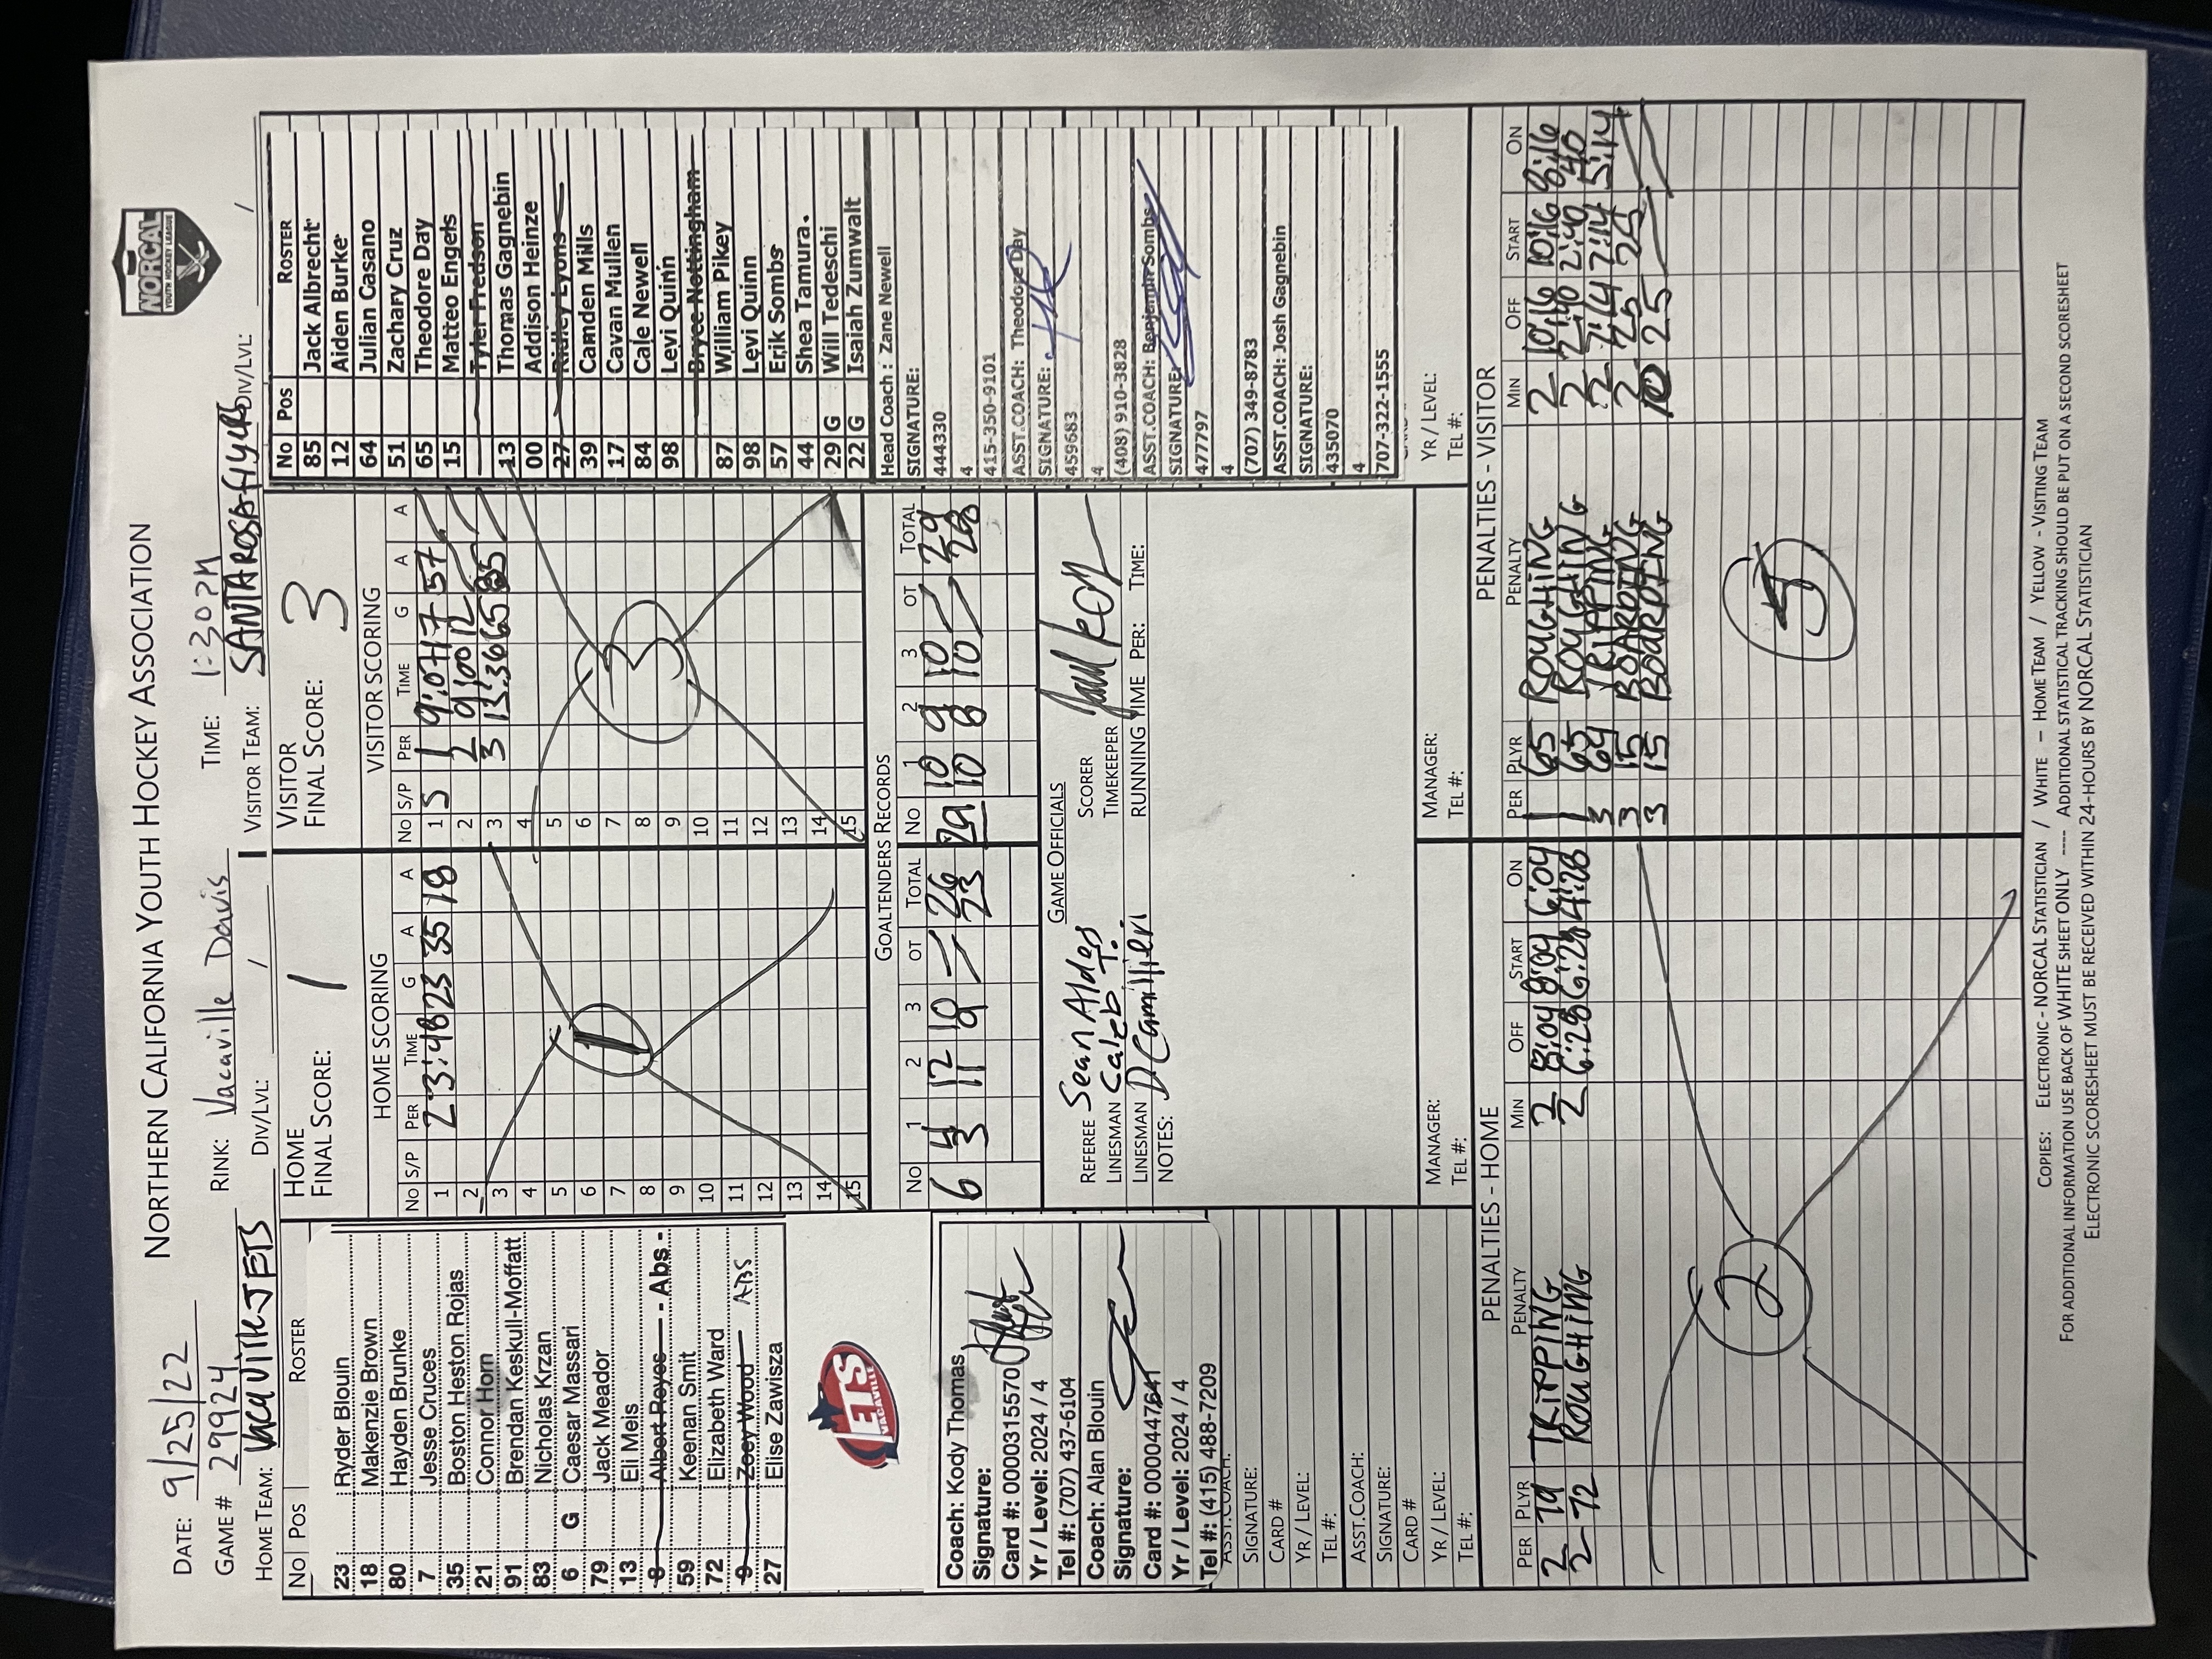 NORTHERN CALIFORNIA YOUTH HOCKEY ASSOCIATION
NORCAL
YOUTH HOCKEY LEAGUE
DATE: 9/25/22
GAME # 29924 RINK: Vacaville Davis TIME: 1:30PM
HOME TEAM: Vacaville JETS DIV/LVL: / VISITOR TEAM: SANTA ROSA Flyers DIV/LVL: /
No Pos ROSTER
23 Ryder Blouin
18 Makenzie Brown
80 Hayden Brunke
7 Jesse Cruces
35 Boston Heston Rojas
21 Connor Horn
91 Brendan Keskull-Moffatt
83 Nicholas Krzan
6 G Caesar Massari
79 Jack Meador
13 Eli Meis
8 Albert Reyes - Abs -
59 Keenan Smit
72 Elizabeth Ward
9 Zoey Wood ABS
27 Elise Zawisza
JETS
VACAVILLE
Coach: Kody Thomas
Signature:
Card #: 0000315570
Yr / Level: 2024 / 4
Tel #: (707) 437-6104
Coach: Alan Blouin
Signature:
Card #: 0000447641
Yr / Level: 2024 / 4
Tel #: (415) 488-7209
ASST.COACH:
SIGNATURE:
CARD #
YR / LEVEL:
TEL #:
ASST.COACH:
SIGNATURE:
CARD #
YR / LEVEL:
TEL #:
HOME
FINAL SCORE: 1
VISITOR
FINAL SCORE: 3
HOME SCORING
No S/P PER TIME G A A
1 2 3:48 23 35 18
2
3
4
5
6
7
8
9
10
11
12
13
14
15
1
VISITOR SCORING
No S/P PER TIME G A A
1 S 1 9:07 17 57
2 2 9:00 12
3 3 13:36 65 85
4
5
6
7
8
9
10
11
12
13
14
15
3
GOALTENDERS RECORDS
No 1 2 3 OT TOTAL No 1 2 3 OT TOTAL
6 4 12 10 26 29 10 9 10 29
3 11 9 23 10 8 10 28
GAME OFFICIALS
REFEREE Sean Aldes SCORER
LINESMAN Caleb T. TIMEKEEPER
LINESMAN D Camillieri RUNNING TIME PER: TIME:
NOTES:
MANAGER:
TEL #:
MANAGER:
TEL #:
No Pos ROSTER
85 Jack Albrecht
12 Aiden Burke
64 Julian Casano
51 Zachary Cruz
65 Theodore Day
15 Matteo Engels
Tyler Fredson
13 Thomas Gagnebin
00 Addison Heinze
27 Ridley Lyons
39 Camden Mills
17 Cavan Mullen
84 Cale Newell
98 Levi Quinn
Bryce Nottingham
87 William Pikey
98 Levi Quinn
57 Erik Sombs
44 Shea Tamura.
29 G Will Tedeschi
22 G Isaiah Zumwalt
Head Coach : Zane Newell
SIGNATURE:
444330
4
415-350-9101
ASST.COACH: Theodore Day
SIGNATURE:
459683
4
(408) 910-3828
ASST.COACH: Benjamin Sombs
SIGNATURE:
477797
4
(707) 349-8783
ASST.COACH: Josh Gagnebin
SIGNATURE:
435070
4
707-322-1555
YR / LEVEL:
TEL #:
PENALTIES - HOME
PER PLYR PENALTY MIN OFF START ON
2 79 TRIPPING 2 8:04 8:04 6:04
2 72 ROUGHING 2 6:28 6:28 4:28
2
PENALTIES - VISITOR
PER PLYR PENALTY MIN OFF START ON
1 65 ROUGHING 2 10:16 10:16 8:16
1 65 ROUGHING 2 2:40 2:40 :40
3 64 TRIPPING 2 7:14 7:14 5:14
3 15 BOARDING 2 25 25
3 15 BOARDING 10 25
5
COPIES: ELECTRONIC - NORCAL STATISTICIAN / WHITE – HOME TEAM / YELLOW - VISITING TEAM
FOR ADDITIONAL INFORMATION USE BACK OF WHITE SHEET ONLY ---- ADDITIONAL STATISTICAL TRACKING SHOULD BE PUT ON A SECOND SCORESHEET
ELECTRONIC SCORESHEET MUST BE RECEIVED WITHIN 24-HOURS BY NORCAL STATISTICIAN